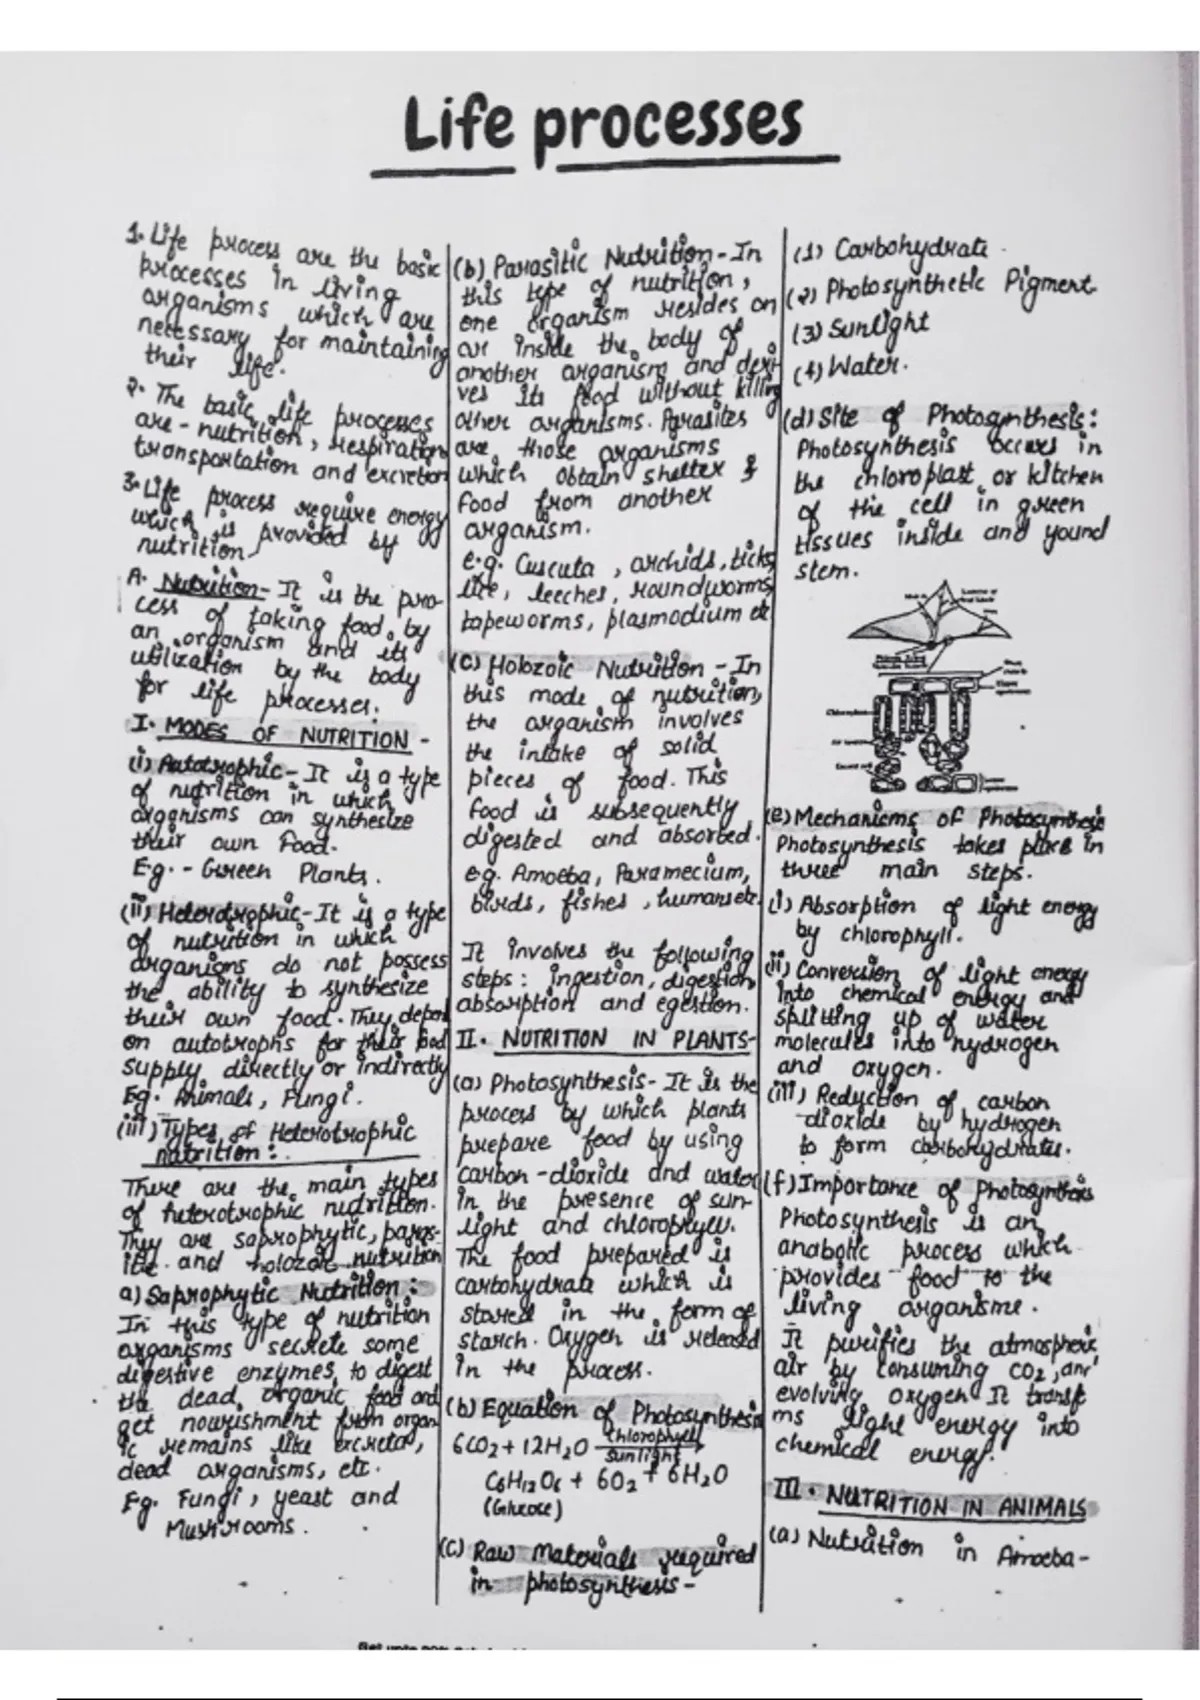 Life processes
1. Life process are the basic
processes in living
organisms which are
necessary for maintaining
their life.
2. The basic life processes
are - nutrition, respiration
transportation and excretion
3. Life process require energy
which is provided by
nutrition
A. Nutrition - It is the pro-
cess of taking food by
an organism and its
utilization by the body
for life processes.
I. MODES OF NUTRITION -
(i) Autotrophic - It is a type
of nutrition in which
organisms can synthesize
their own food.
E.g. - Green Plants.
(ii) Heterotrophic - It is a type
of nutrition in which
organigns do not possess
the ability to synthesize
their own food. They depend
on autotrophs for their food
supply directly or indirectly
Eg. Animals, Fungi.
(iii) Types of Heterotrophic
nutrition :
There are the main types
of heterotrophic nutrition.
They are saprophytic, paras-
itic and holozoic nutrition
a) Saprophytic Nutrition :
In this type of nutrition
organisms secrete some
digestive enzymes to digest
the dead organic food and
get nourishment from organ
ic remains like excreta,
dead organisms, etc.
Eg. Fungi, yeast and
Mushrooms.
(b) Parasitic Nutrition - In
this type of nutrition,
one organism resides on
or inside the body of
another organism and deri-
ves its food without killing
other organisms. Parasites
are those organisms
which obtain shelter &
food from another
organism.
e.g. Cuscuta, orchids, ticks,
lice, leeches, roundworms,
tapeworms, plasmodium etc
(c) Holozoic Nutrition - In
this mode of nutrition,
the organism involves
the intake of solid
pieces of food. This
food is subsequently
digested and absorbed.
eg. Amoeba, Paramecium,
birds, fishes, humans etc.
It involves the following
steps : ingestion, digestion,
absorption and egestion.
II. NUTRITION IN PLANTS -
(a) Photosynthesis - It is the
process by which plants
prepare food by using
carbon - dioxide and water
in the presence of sun-
light and chlorophyll.
The food prepared is
carbohydrate which is
stored in the form of
starch. Oxygen is released
in the process.
(b) Equation of Photosynthesis
6CO2 + 12H2O chlorophyll
sunlight
C6H12O6 + 6O2 + 6H2O
(Glucose)
(c) Raw Materials required
in photosynthesis -
(1) Carbohydrate.
(2) Photosynthetic Pigment
(3) Sunlight
(4) Water.
(d) Site of Photosynthesis :
Photosynthesis occurs in
the chloroplast or kitchen
of the cell in green
tissues inside and yound
stem.
(e) Mechanicms of Photosynthesis
Photosynthesis takes place in
three main steps.
(i) Absorption of light energy
by chlorophyll.
(ii) Conversion of light energy
into chemical energy and
splitting up of water
molecules into hydrogen
and oxygen.
(iii) Reduction of carbon
dioxide by hydrogen
to form carbohydrates.
(f) Importance of Photosynthesis
Photosynthesis is an
anabolic process which
provides food to the
living organisms.
It purifies the atmospheric
air by consuming CO2, and
evolving oxygen It transf
ms light energy into
chemical energy.
III. NUTRITION IN ANIMALS
(a) Nutrition in Amoeba -